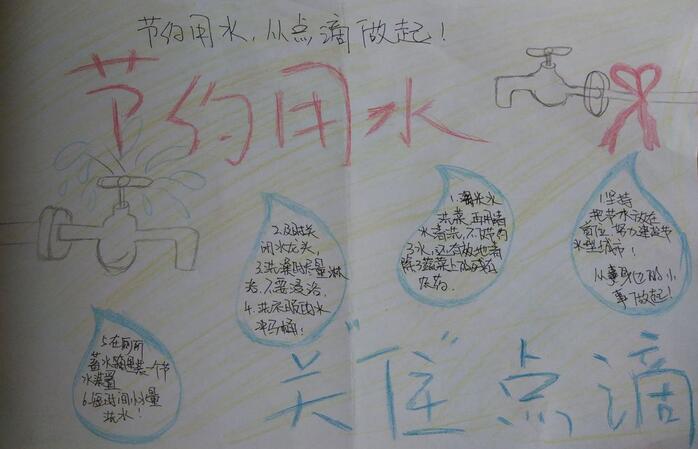 节约用水,从点滴做起!
节约用水
1.淘米水
洗菜,再用清
水清洗,不仅节约
了水,还有效地清
除了蔬菜上的残存
农药.
1.坚持
把节水放在
首位,努力建设节
水型城市!
从身边的小
事做起!
2.及时关
闭水龙头,
3.洗澡时尽量淋
浴,不要浸浴.
4.洗衣服的水
冲马桶!
5.在厕所
蓄水箱里装一个节
水装置
洗水!
关"住"点滴